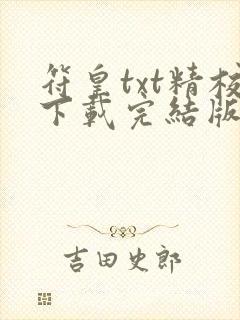 符皇txt精校
下载完结版
吉田史郎